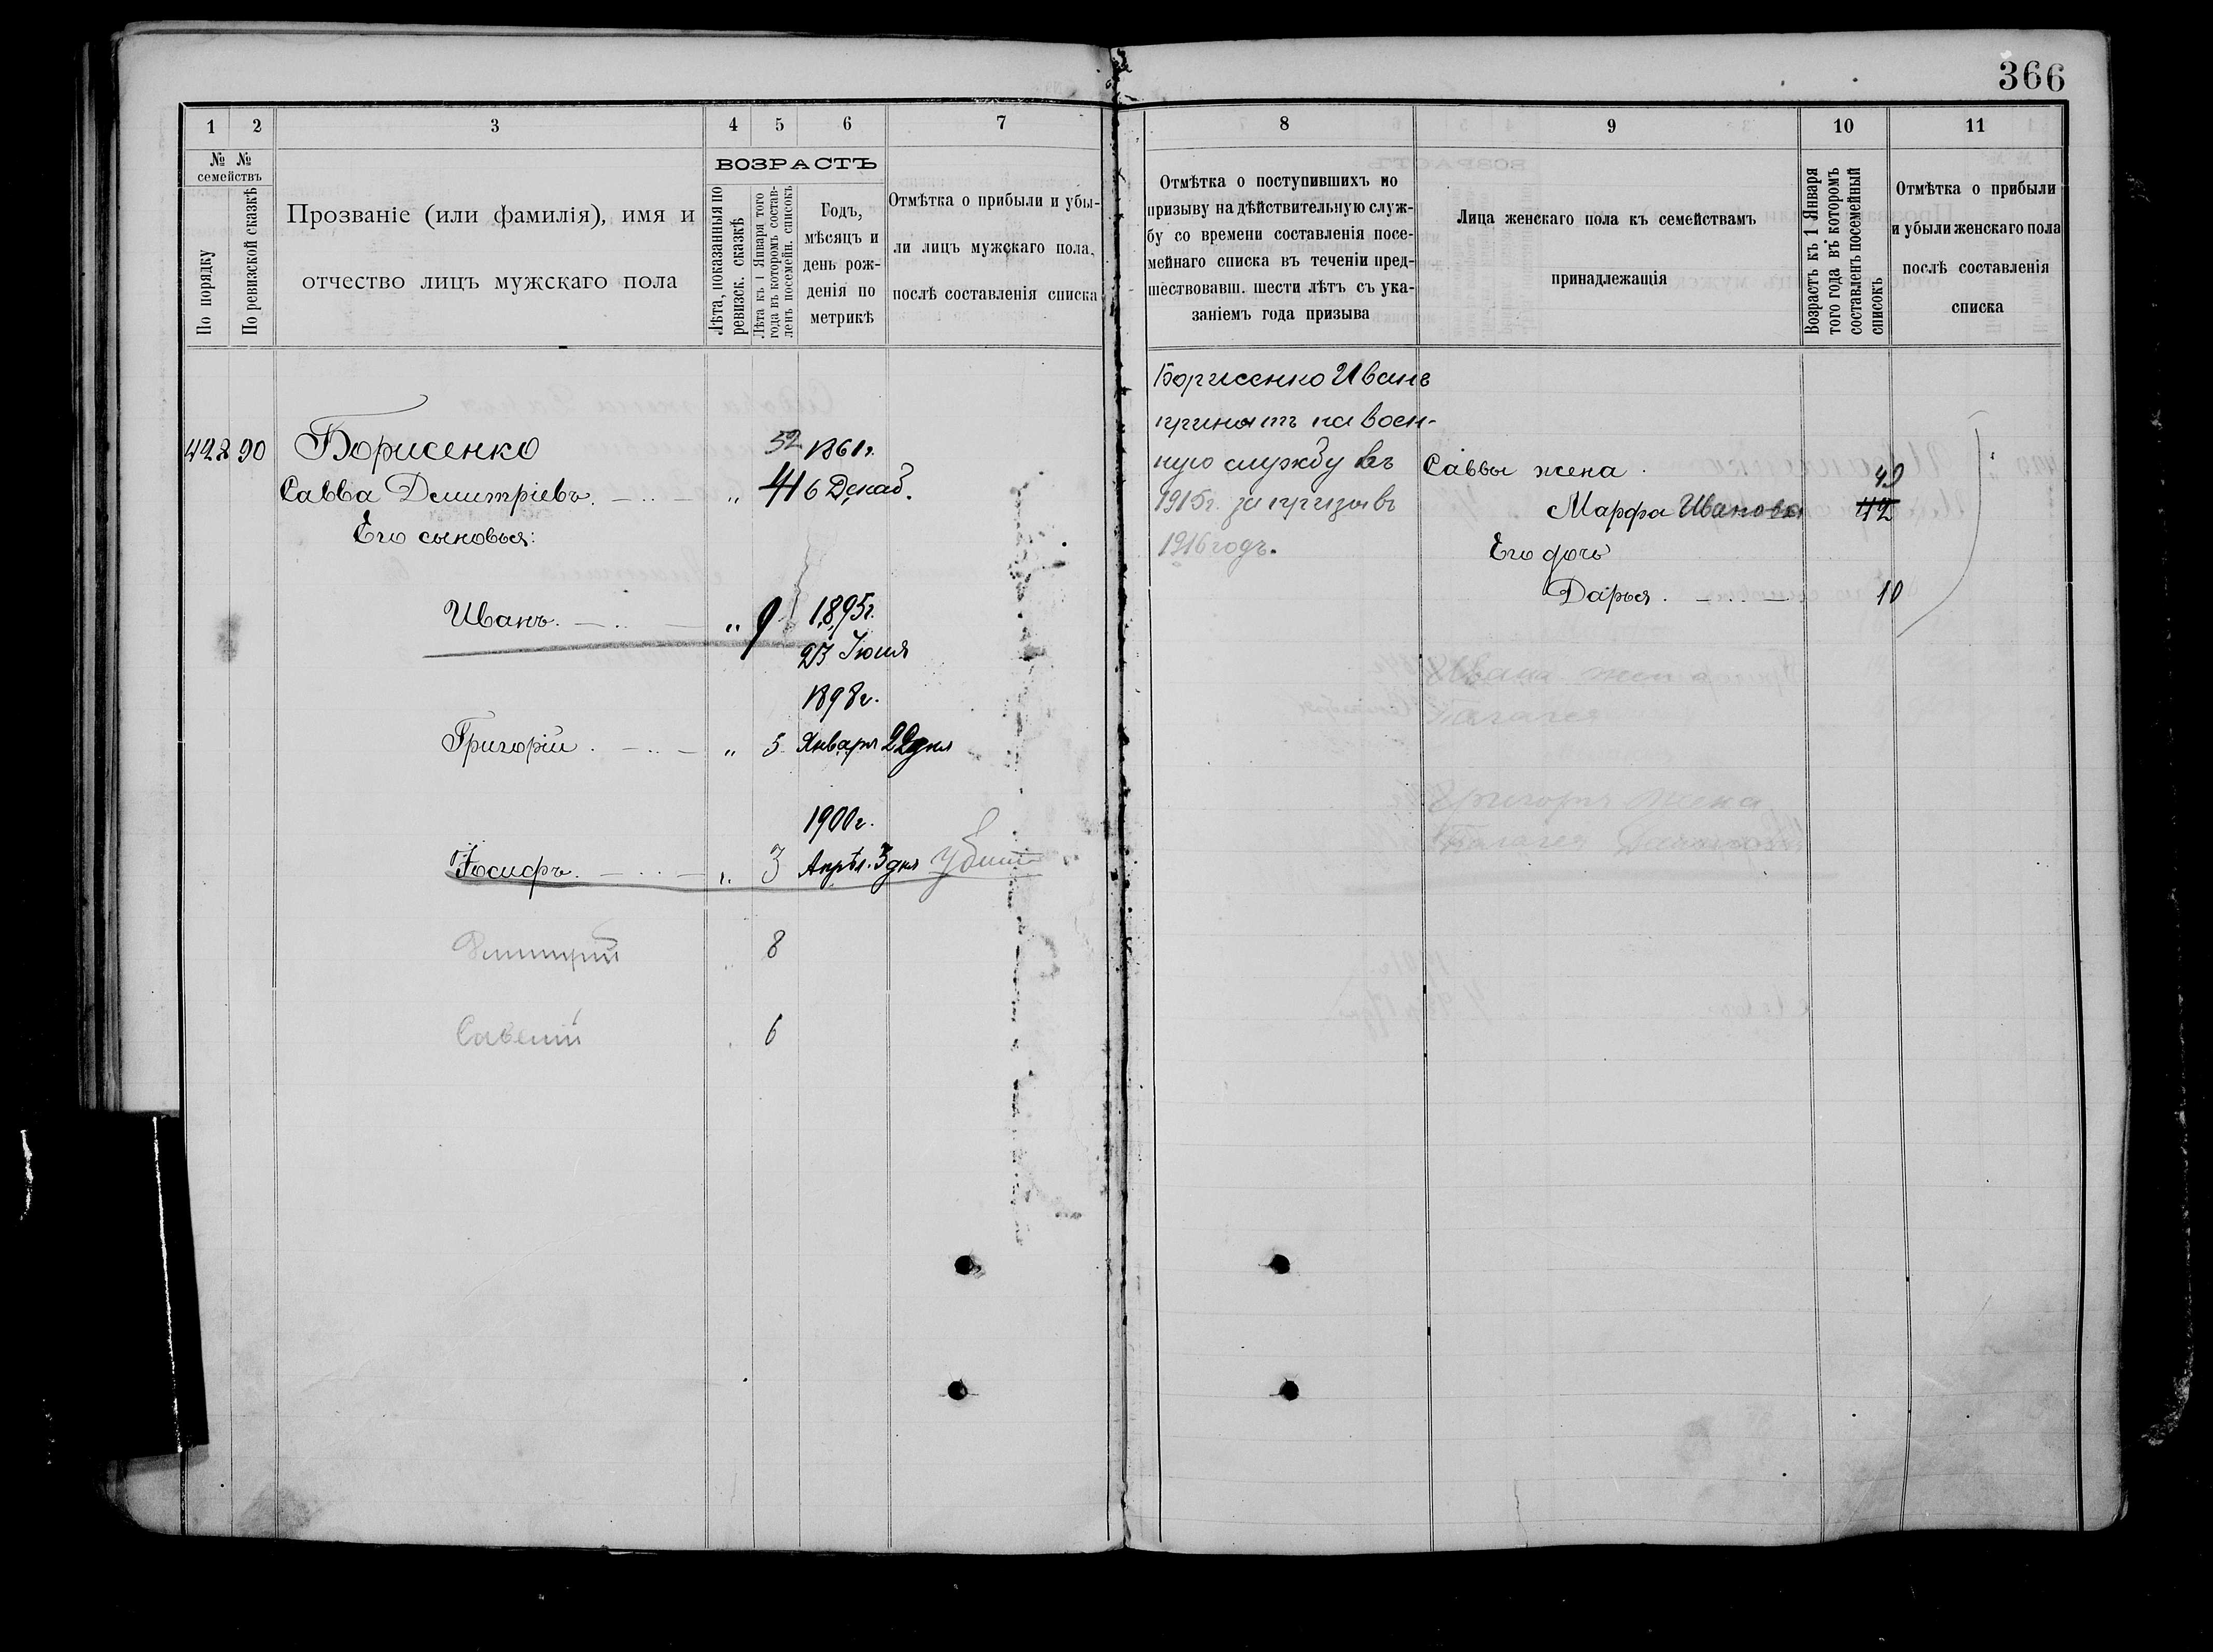 366
1
2
3
4
5
6
7
№ №
семействъ
По порядку
По ревизской сказкѣ
Прозваніе (или фамилія), имя и
отчество лицъ мужскаго пола
ВОЗРАСТЪ
Лѣта, показанныя по
ревизск. сказкѣ
Лѣта къ 1 Января того
года въ которомъ состав-
ленъ посемейн. списокъ
Годъ,
мѣсяцъ и
день рож-
денія по
метрикѣ
Отмѣтка о прибыли и убы-
ли лицъ мужскаго пола,
послѣ составленія списка
428 90 Борисенко 52 1861г.
Савва Димитріевъ. " 41 6 Декаб.
Его сыновья:
Иванъ. " 9 1895г.
23 Іюня
1898г.
Григорій. " 5 Января 22 дня
1900г.
Іосифъ. " 3 Апрѣл. 3 дня убит
Димитрій 8
Савелий 6
8
9
10
11
Отмѣтка о поступившихъ по
призыву на дѣйствительную служ-
бу со времени составленія посе-
мейнаго списка въ теченіи пред-
шествовавш. шести лѣтъ съ ука-
заніемъ года призыва
Лица женскаго пола къ семействамъ
принадлежащія
Возрастъ къ 1 Января
того года въ которомъ
составленъ посемейный
списокъ
Отмѣтка о прибыли
и убыли женскаго пола
послѣ составленія
списка
Борисенко Иванъ
принятъ на воен-
ную службу въ
1915г. за призывъ
1916 годъ.
Саввы жена.
49
Марфа Иванова 42
Его дочь
Дарья. 10
Ивана жена
Григорія жена